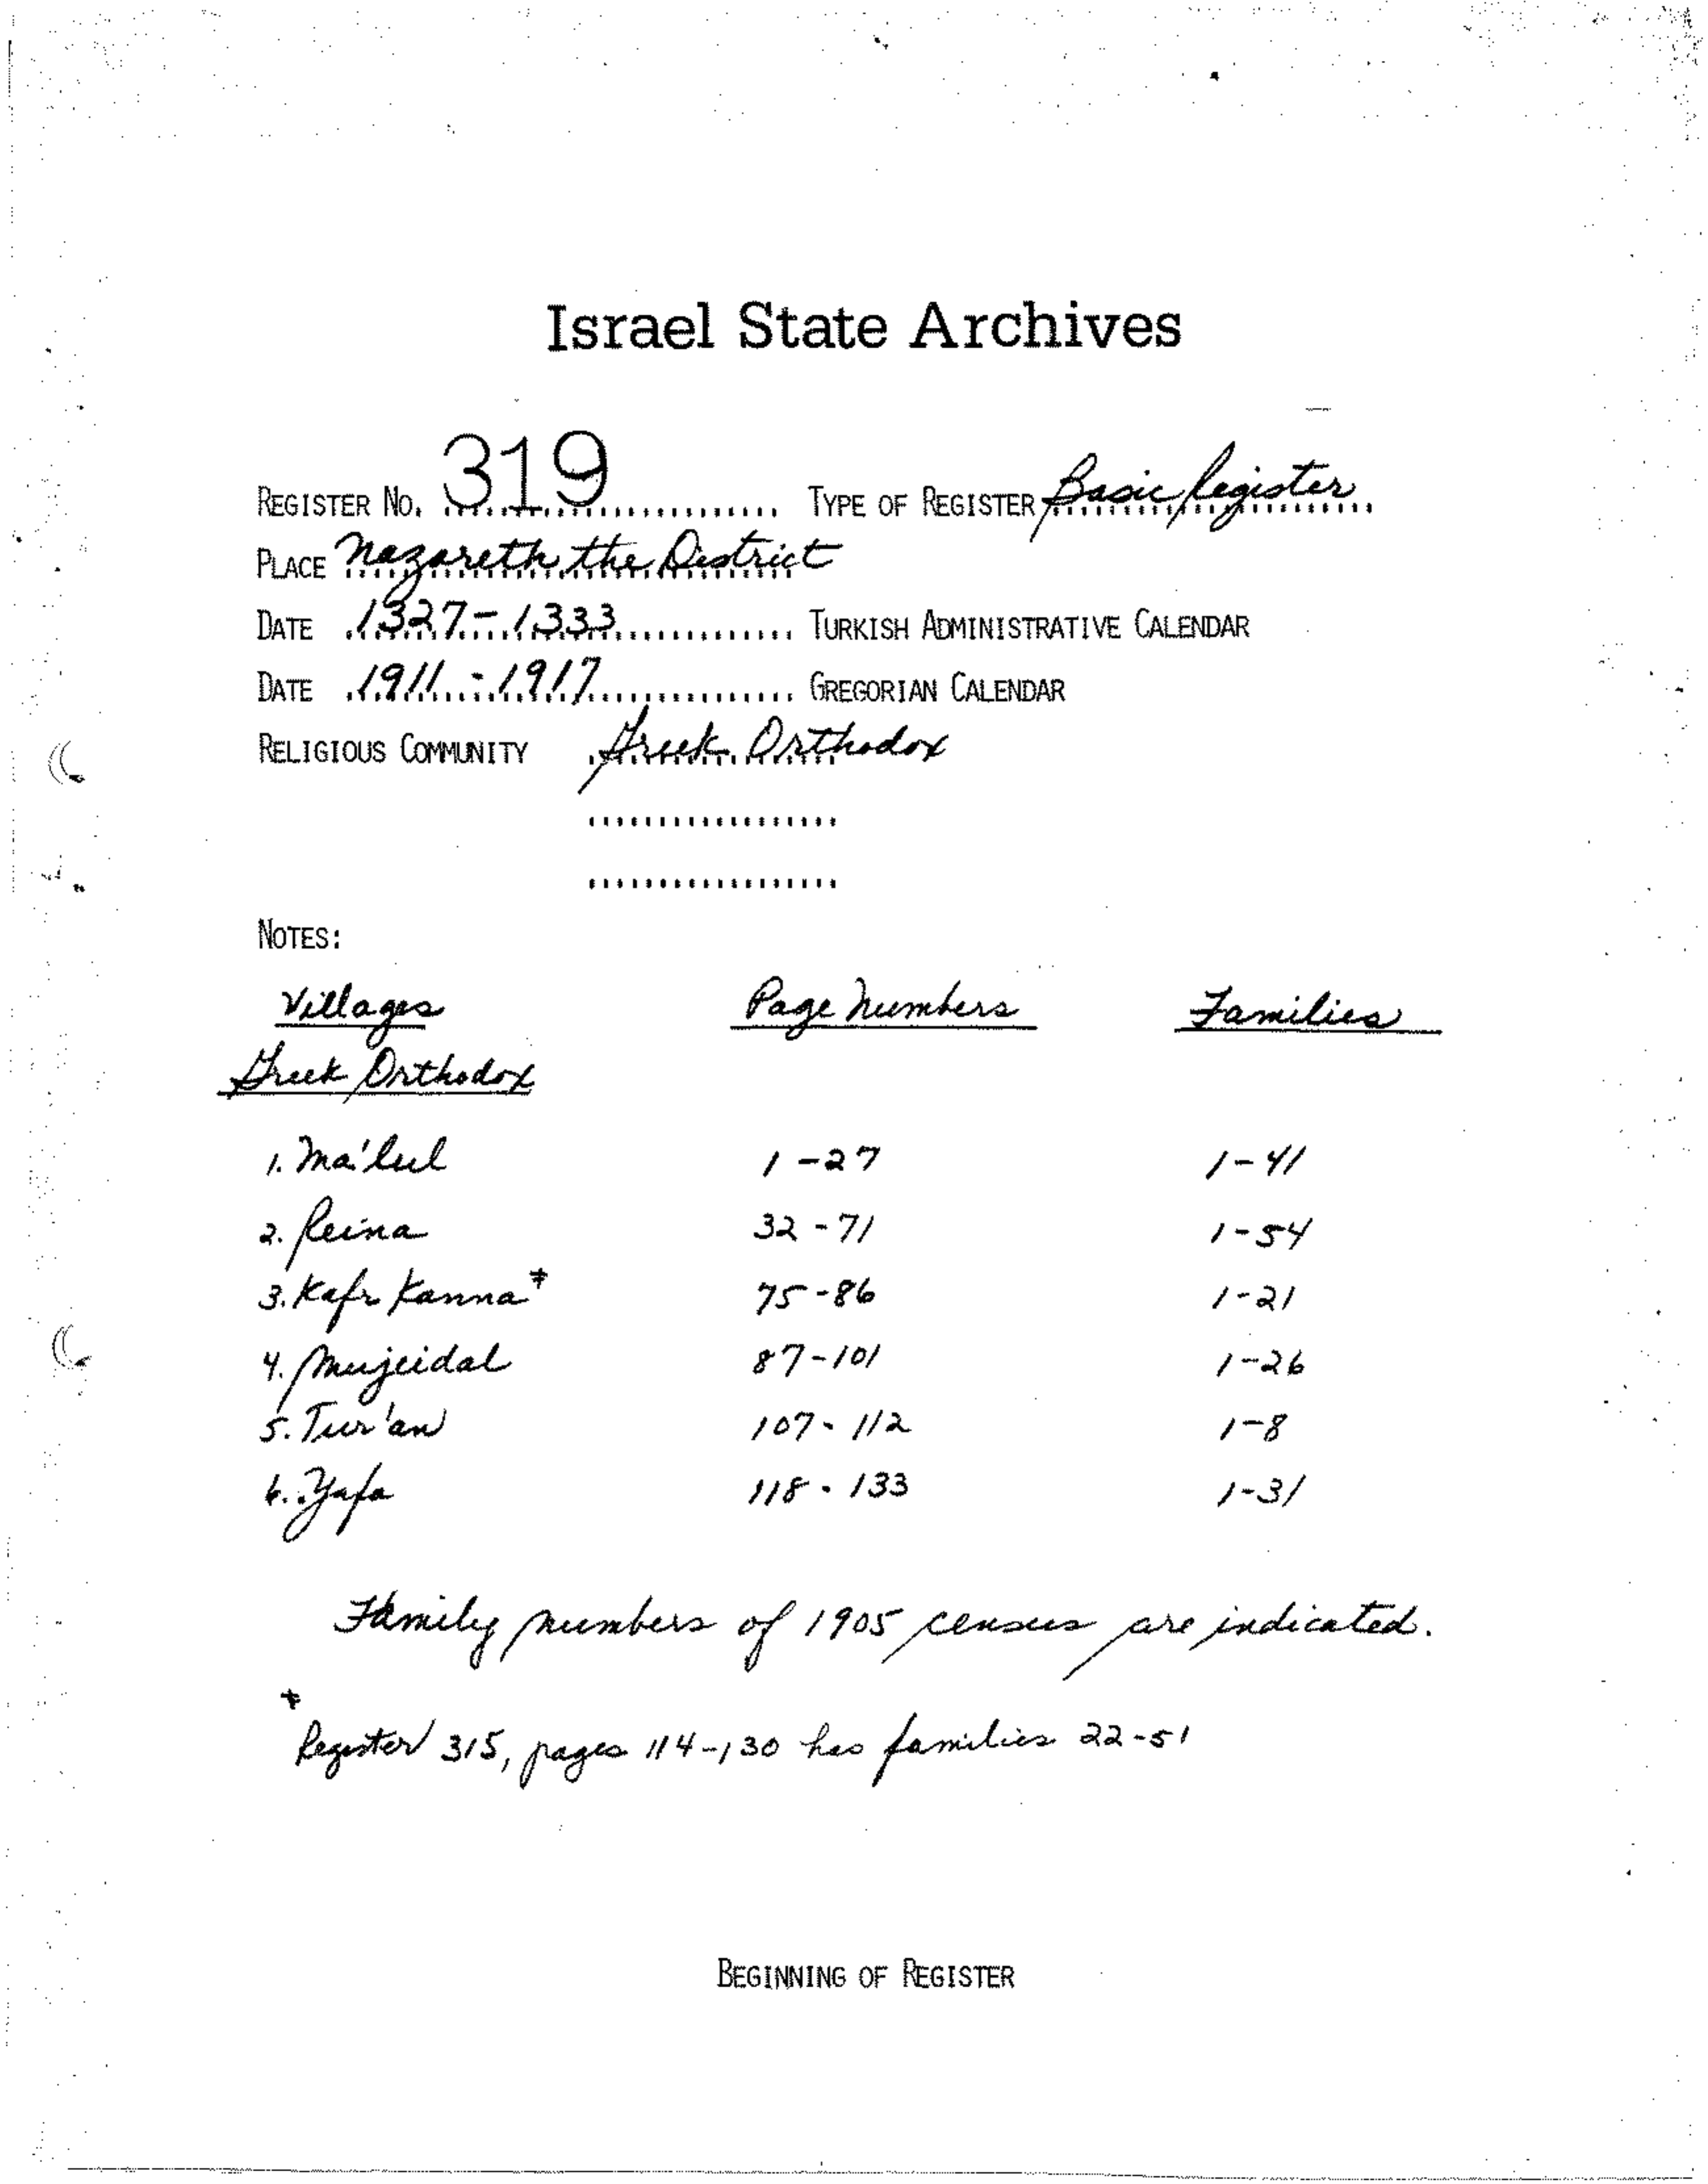 Israel State Archives
REGISTER NO. 319 TYPE OF REGISTER Basic Register
PLACE Nazareth the District
DATE 1327-1333 TURKISH ADMINISTRATIVE CALENDAR
DATE 1911-1917 GREGORIAN CALENDAR
RELIGIOUS COMMUNITY Greek Orthodox
NOTES:
Villages Page Numbers Families
Greek Orthodox
1. Ma'lul 1-27 1-41
2. Reina 32-71 1-54
3. Kafr Kanna* 75-86 1-21
4. Mujeidal 87-101 1-26
5. Tur'an 107-112 1-8
6. Yafa 118-133 1-31
Family numbers of 1905 census are indicated.
*
Register 315, pages 114-130 has families 22-51
BEGINNING OF REGISTER